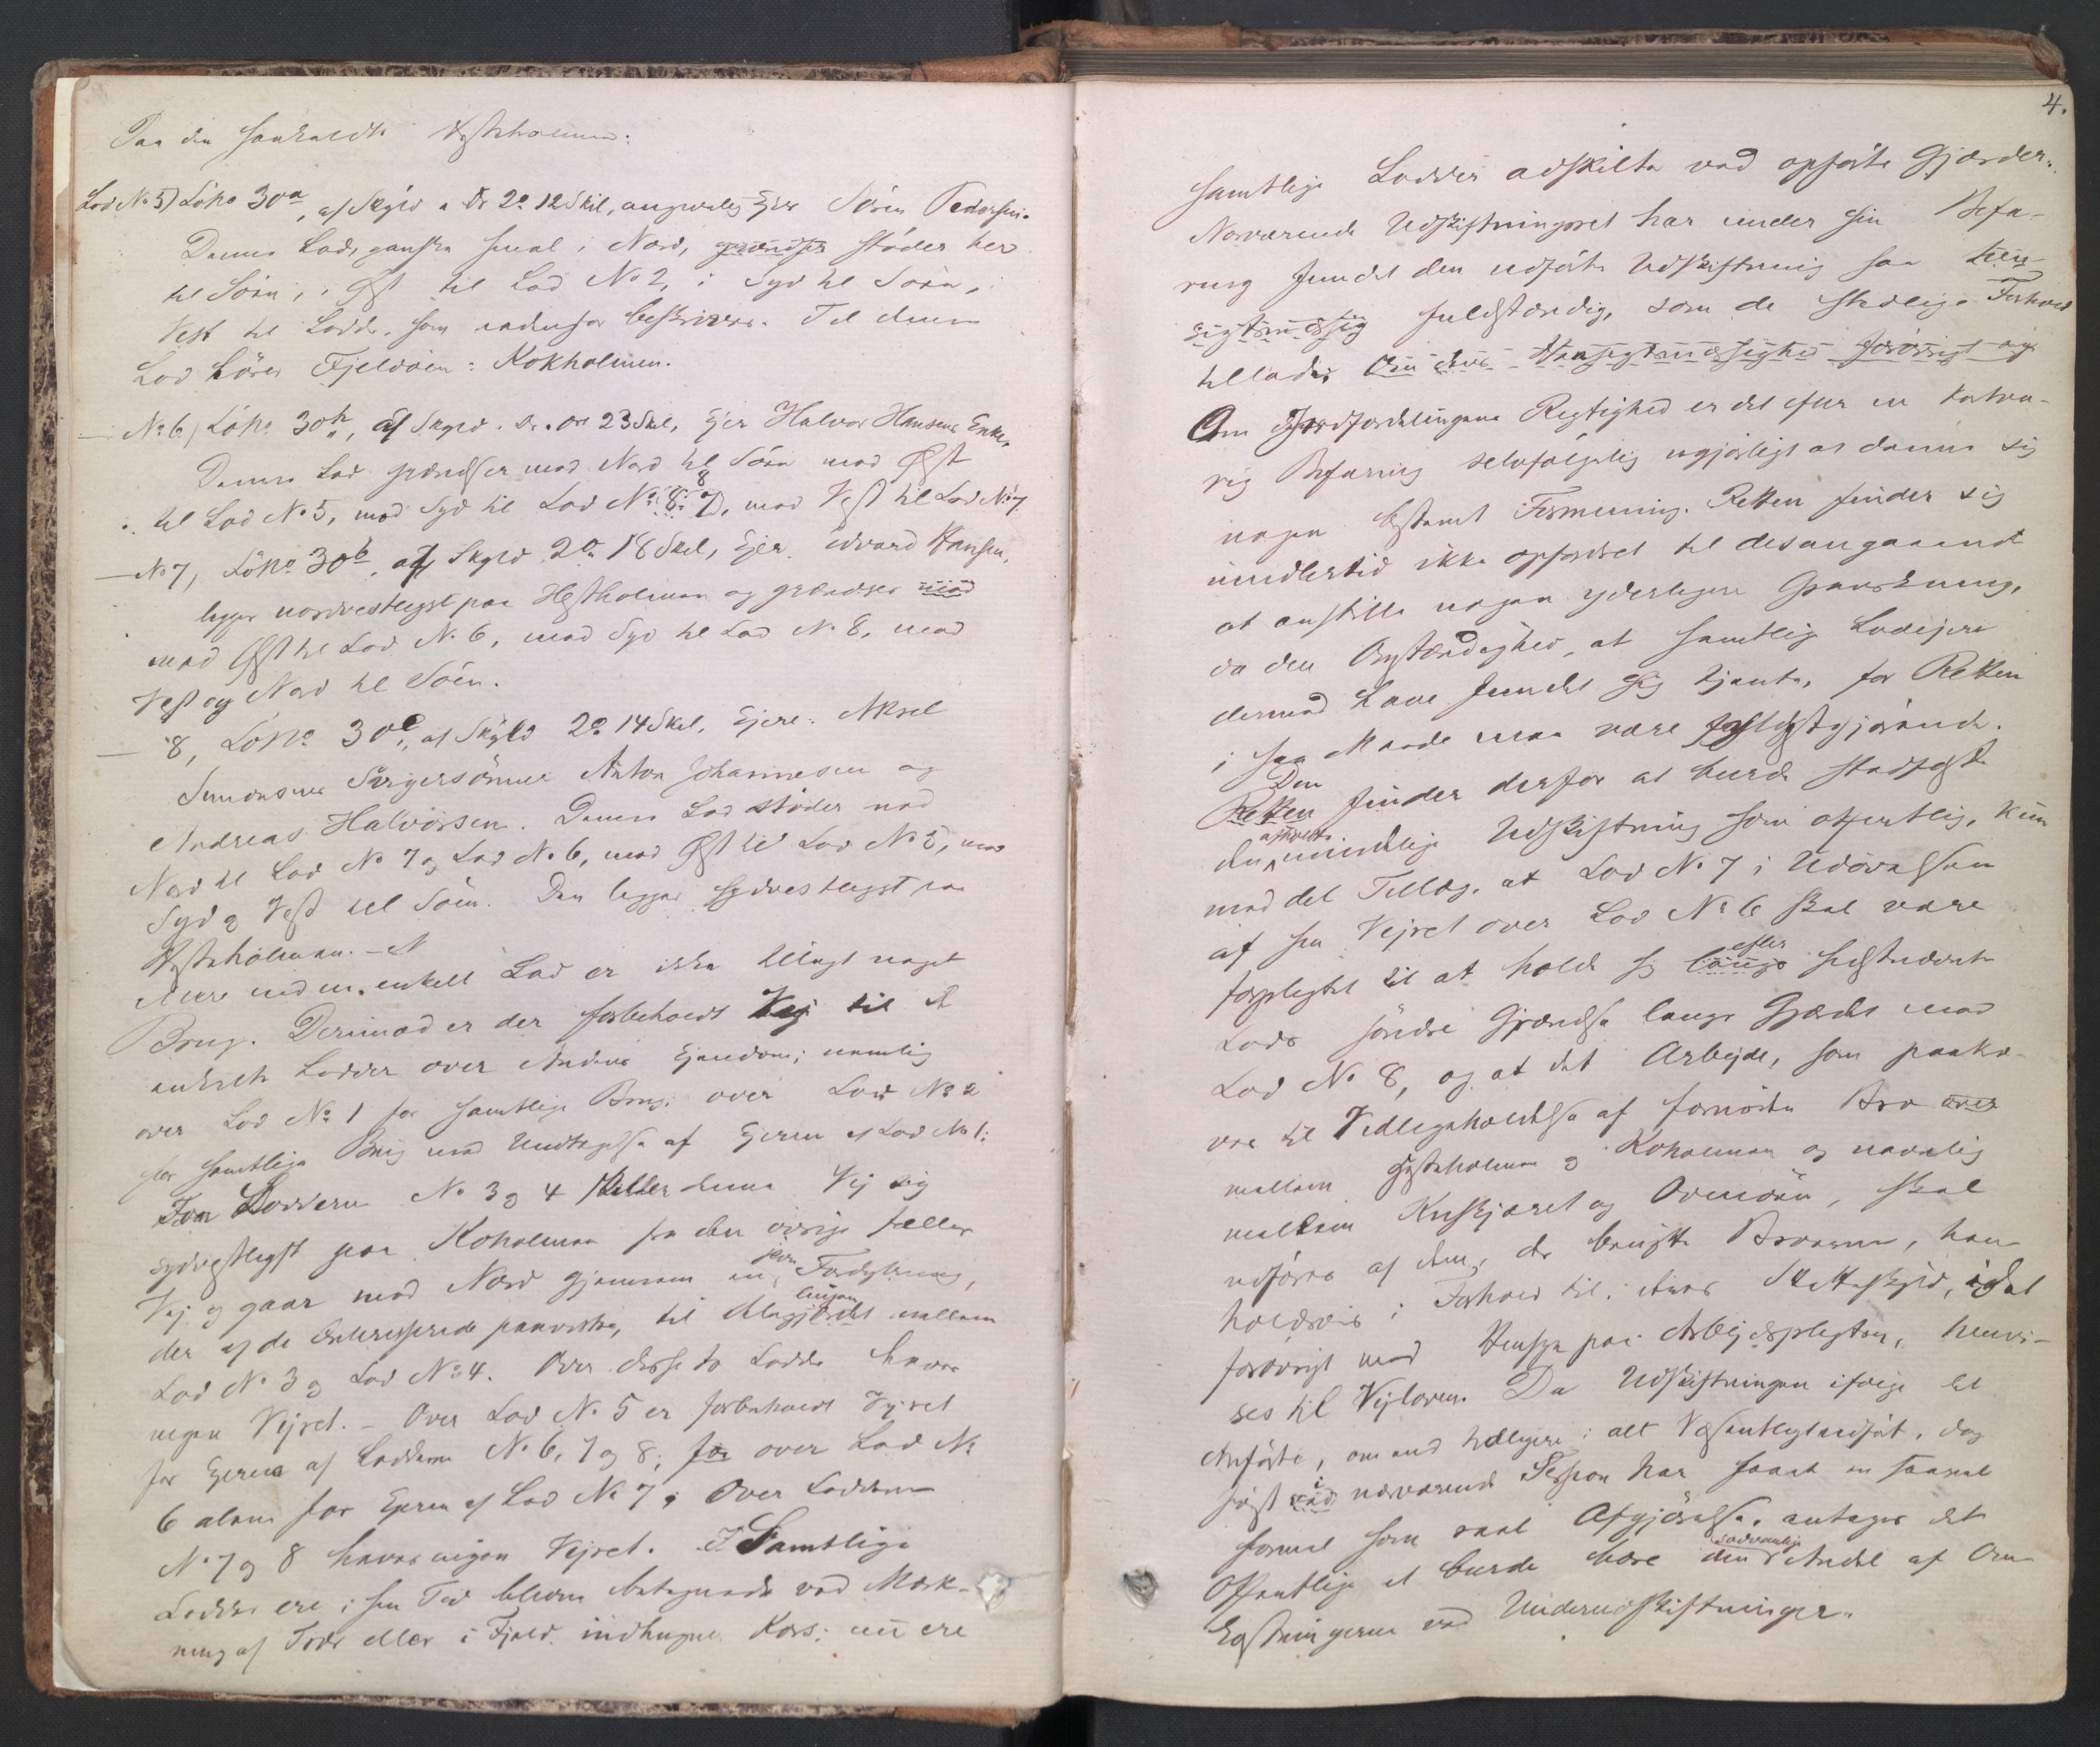 Paa den saakaldte Hestholmen:
Lod No 5) Löbno 30a, af Skyld a Dr 2 o. 12 Skil, angivelig Ejer Sören Pedersen.
Denne Lod, ganske smal i Nord, grændser støder her
til Söen, i Øst til Lod No 2, i Syd til Söen, i
Vest til Lodder, som nedenfor beskrives. Til denne
Lod hörer Fjeldöen: Kokholmen.
— No 6, Löbno 30h, af Skyld Dr. Ort 23 Skil, Ejer Halvor Hansens Enke,
Denne Lod grændser mod Nord til Söen mod Øst
til Lod No 5, mod Syd til Lod No 8 7, mod Vest til Lod No 7
— No 7, Löbno 30b, af Skyld 2 o. 18 Skil, Ejer Edvard Hansen,
ligger nordvestligst paa Hestholmen og grændser mod
mod Øst til Lod No 6, mod Syd til Lod No 8, mod
Vest og Nord til Söen.
— 8, Löbno 30e, af Skyld 2 o. 14 Skil, Ejere: Aksel
Simonsens Anton Johannesen og
Andreas Halvorsen. Denne Lod støder mod
Nord til Lod No 7 og Lod No 6, mod Øst til Lod No 5, mod
Syd og Vest til Söen. Den ligger sydvestligst paa
Hestholmen. –
Mere end en enkelt Lod er ikke tillagt noget
Brug. Derimod er der forbeholdt Vej til de
enkelte Lodder over Andens Ejendom; nemlig
over Lod No 1 for samtlige Brug; over Lod No 2
for samtlige Brug med Undtagelse af Ejeren af Lod No 1;
For Lodderne No 3 og 4 skiller denne Vej sig
sydvestligst paa Koholmen fra den øvrige fælles
Vej og gaar mod Nord gjennem en Fordybning,
der af de Interesserede paavistes, til mellem
Lod No 3 og Lod No 4. Over disse to Lodder haves
ingen Vejret. – Over Lod No 5 er forbeholdt Vejret
for Ejerne af Lodderne No 6, 7 og 8; for over Lod No
6 alene for Ejeren af Lod No 7; Over Lodderne
No 7 og 8 haves ingen Vejret. Samtlige
Lodder ere i sin Tid blevne betegnede ved Mærk-
ning af Trær eller i Fjeld indhugne Kors; nu ere
4.
samtlige Lodder adskilte ved opførte Gjærder.
Nærværende Udskiftningsret har under sin Befa-
ring fundet den udførte Udskiftning saa hen-
sigtsmæssig fuldstændig, som de stedlige Forhold
tillade; Om dens Hensigtsmæssighed forövrigt og
Om Jordfordelingens Rigtighed er det efter en kortva-
rig Befaring selvfølgelig ugjørligt at danne sig
nogen bestemt Formening. Retten finder sig
imidlertid ikke opfordret til desangaaende
at anstille nogen yderligere Granskning,
da den Omstændighed, at samtlige Lodejere
dermed have fundet sig tjente, for Retten
i saa Maade maa være fyldestgjørende.
Retten Den finder derfor at burde stadfæste
den mindelige Udskiftning som offentlig, kun
med det Tillæg, at Lod No 7 i Udøvelsen
af sin Vejret over Lod No 6 skal være
forpligtet til at holde sig langs efter sidstnævnte
Lods söndre Grændse langs Gjærdet mod
Lod No 8, og at det Arbejde, som paakræ-
ves til Vedligeholdelse af fornödne Bro over
mellem Hestholmen og Koholmen og navnlig
mellem Knskjæret og Ormöen, skal
udføres af dem, der benytte Broerne, hen-
holdsvis i Forhold til deres Matrskyld, idet
forøvrigt med Hensyn paa Arbejdspligten, henvi-
ses til Vejloven. Da Udskiftningen ifølge det
Anførte, om end tidligere i alt Væsentligt udført, dog
først ved i nærværende Session har faaet en saavel
formel som reel Afgjörelse, antages det
Offentlige at burde bære den sædvanlige Andel af Om-
kostningerne ved Underudskiftninger.